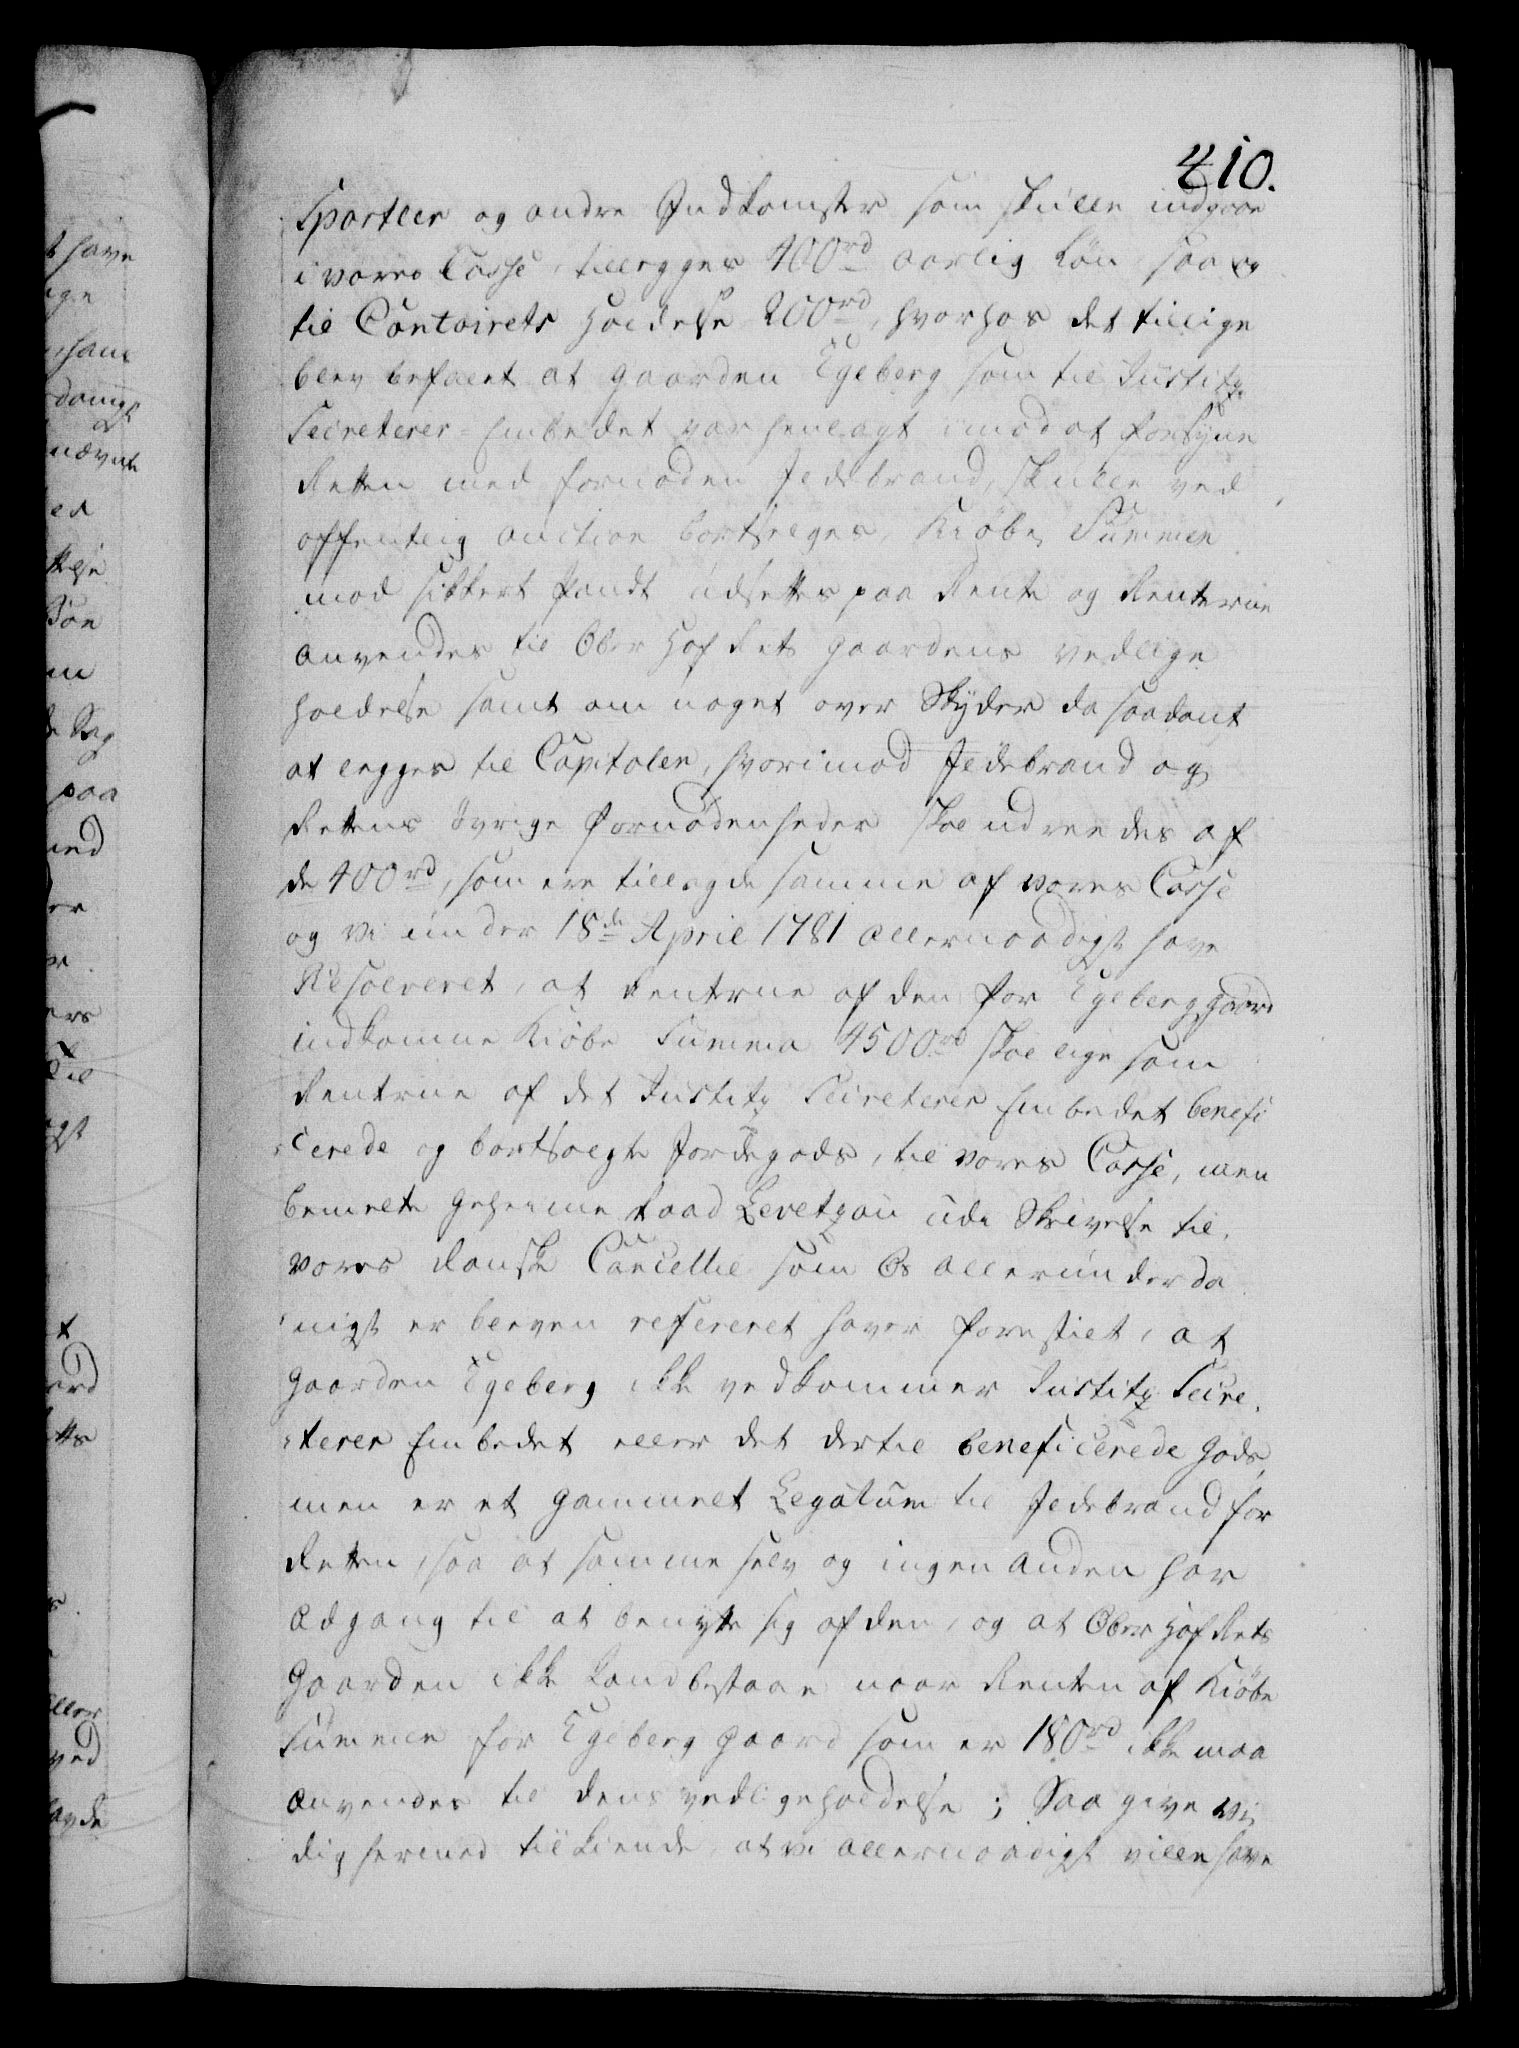 410.
Sportler og andre Indkomster som skulle indgaae
i vores Casse, tillegges 400rd aarlig Løn, saa og
til Contoirets Holdelse 200rd, hvorhos det tillige
blev befalet at Gaarden Egeberg som til Justitz
Secreterer-Embedet var henlagt imod at forsyne
Retten med fornøden Jldebrand, skulle ved
offentlig auction bortselges, Kiøbe Summen
mod sikkert Pandt udsettes paa Rente og Renterne
anvendes til Ober Hof Rets Gaardens vedlige
holdelse samt om noget over Skyder da saadant
at legges til Capitalen, hvorimod Jldebrand og
Rettens övrige Fornødenheder skal udreedes af
de 400rd, som ere tillagde samme af vores Casse
og Vi under 18de April 1781 allernaadigst have
Resolveret, at Renterne af den for Egeberg gaard
indkomne Kiöbe Summa 4500rd skal lige som
Renterne af det Justitz Secreterer Embedet benefi
cerede og bortsolgte Jordegods, til vores Casse, men
bemelte Geheime Raad Levetzau udi Skrivelse til
vores danske Cancellie som Os allerunderda
nigst er bleven refereret haver forestilet, at
Gaarden Egeberg ikke vedkommer Justitz Secre
terer Embedet eller det dertil beneficerede Gods,
men er et gammelt Legatum til Jldebrand for
Retten, saa at samme selv og ingen anden har
Adgang til at benytte sig af den, og at Ober Hof Rets
Gaarden ikke kand bestaae naar Renten af Kiöbe
Summen for Egeberg Gaard som er 180rd ikke maa
anvendes til dens vedligeholdelse; Saa give Vi
dig hermed tilkiende, at vi allernaadigst ville have